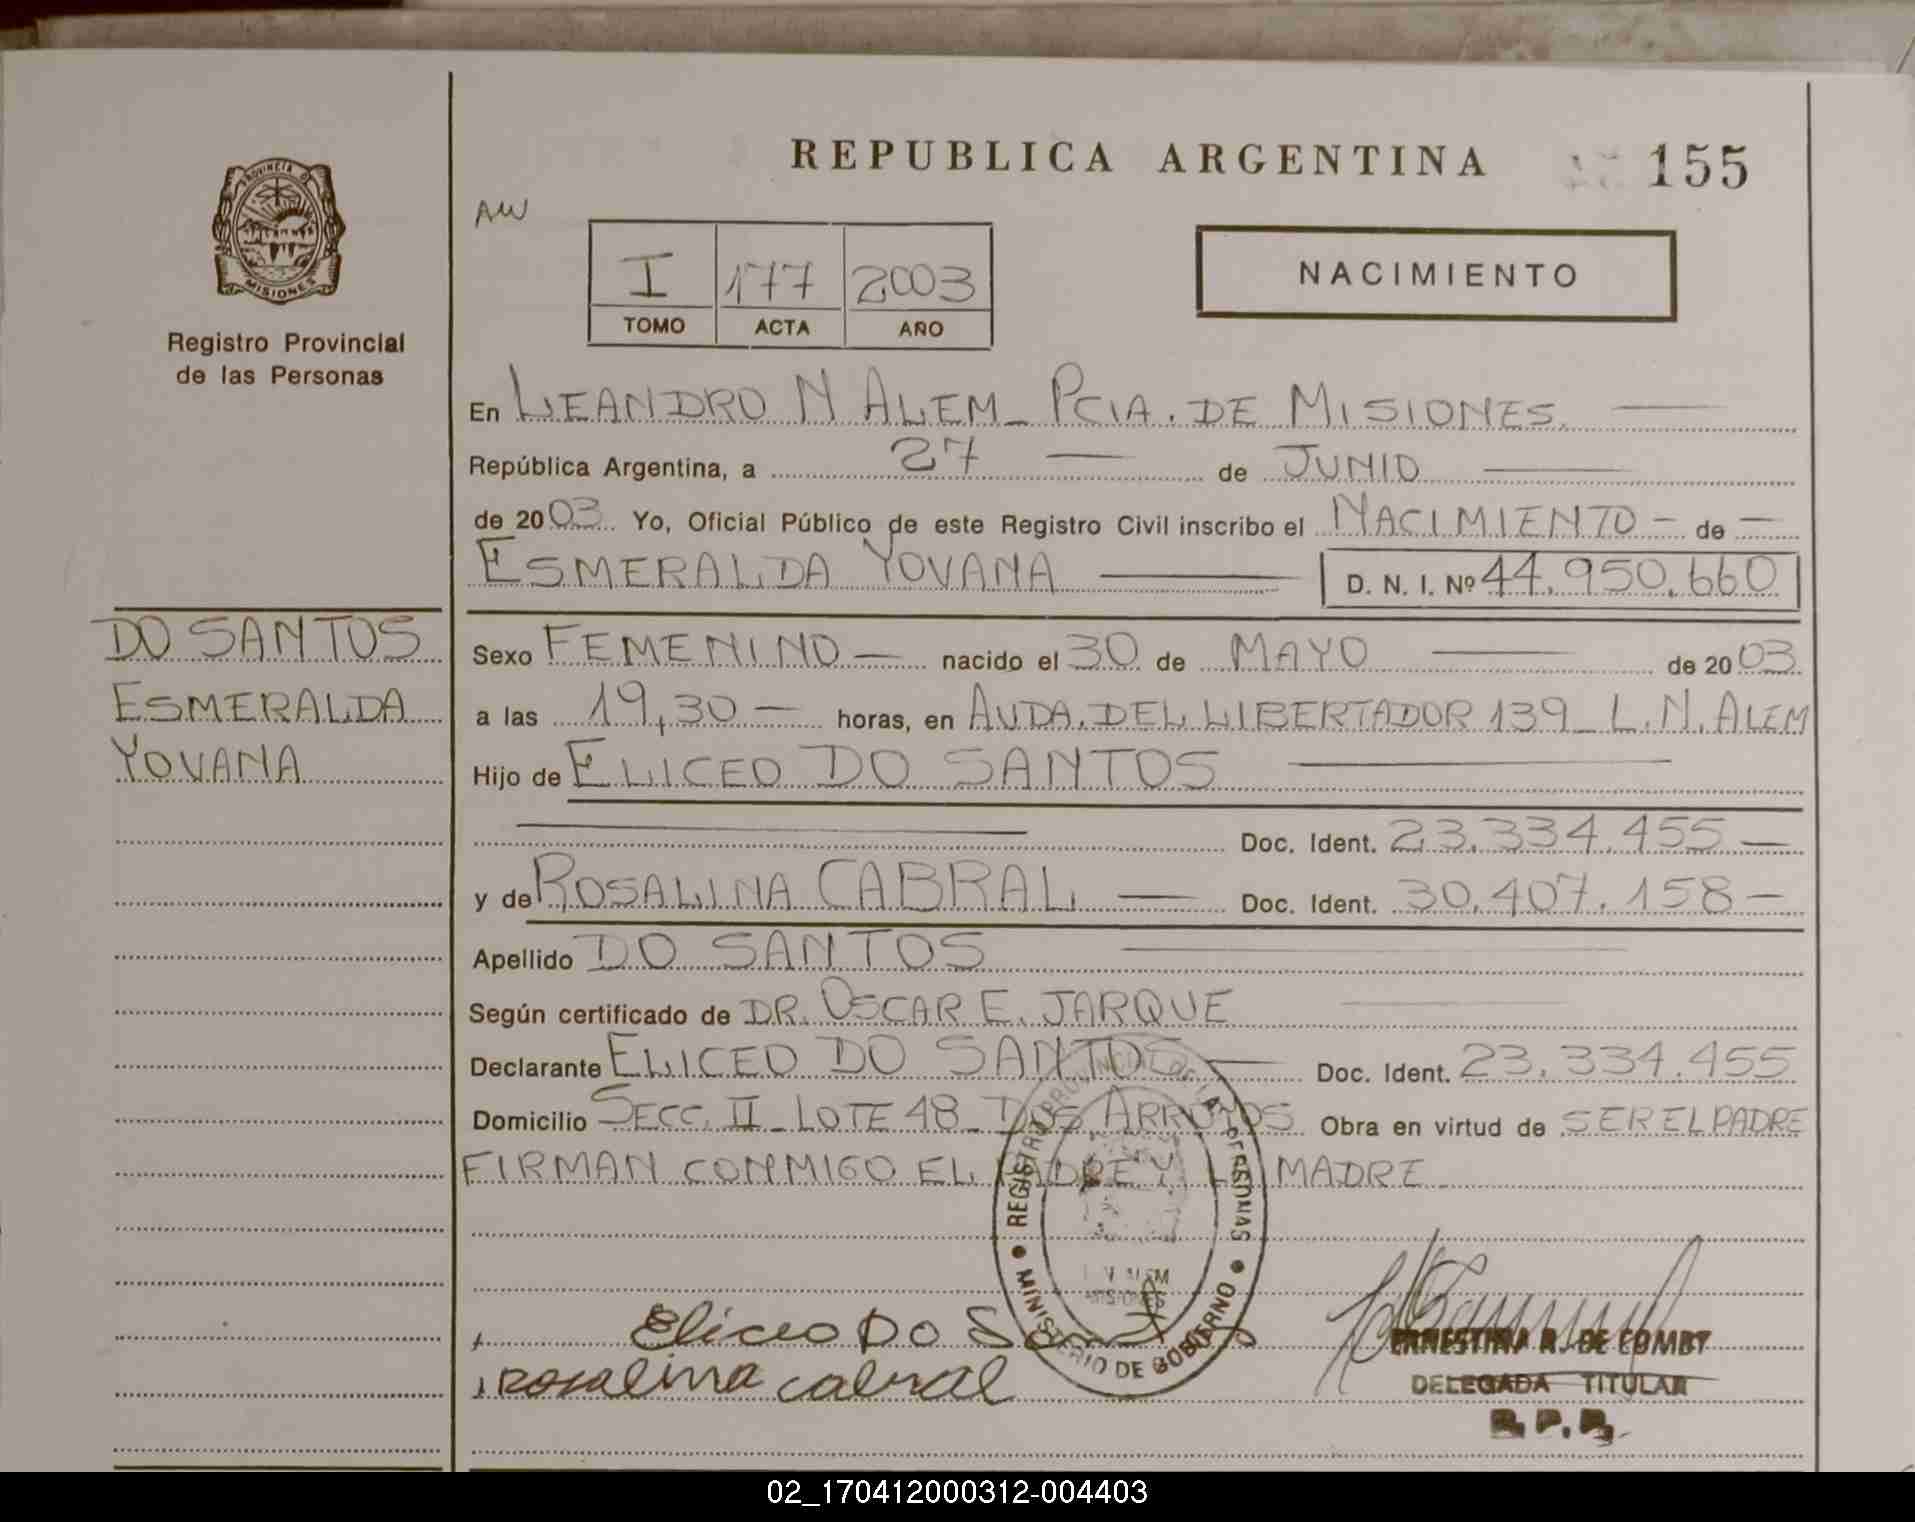 REPUBLICA ARGENTINA 155
PROVINCIA DE
MISIONES
Registro Provincial
de las Personas
AW
I 177 2003
TOMO ACTA AÑO
NACIMIENTO
En LEANDRO N ALEM - PCIA. DE MISIONES
República Argentina, a 27 de JUNIO
de 2003 Yo, Oficial Público de este Registro Civil inscribo el NACIMIENTO - de -
ESMERALDA YOVANA D. N. I. Nº 44.950.660
DO SANTOS
ESMERALDA
YOVANA
Sexo FEMENINO - nacido el 30 de MAYO de 2003
a las 19,30 - horas, en AVDA. DEL LIBERTADOR 139 - L.N. ALEM
Hijo de ELICEO DO SANTOS
Doc. Ident. 23.334.455 -
y de ROSALINA CABRAL - Doc. Ident. 30.407.158 -
Apellido DO SANTOS
Según certificado de DR. OSCAR E. JARQUE
Declarante ELICEO DO SANTOS - Doc. Ident. 23.334.455
Domicilio SECC. II - LOTE 48 - DOS ARROYOS Obra en virtud de SER EL PADRE
FIRMAN CONMIGO EL PADRE Y LA MADRE
REGISTRO PROVINCIAL DE LAS PERSONAS
MINISTERIO DE GOBIERNO
ALEM
MISIONES
Eliceo Do Santos
Rosalina Cabral
ERNESTINA R. DE COMBY
DELEGADA TITULAR
R. P. P.
02_170412000312-004403